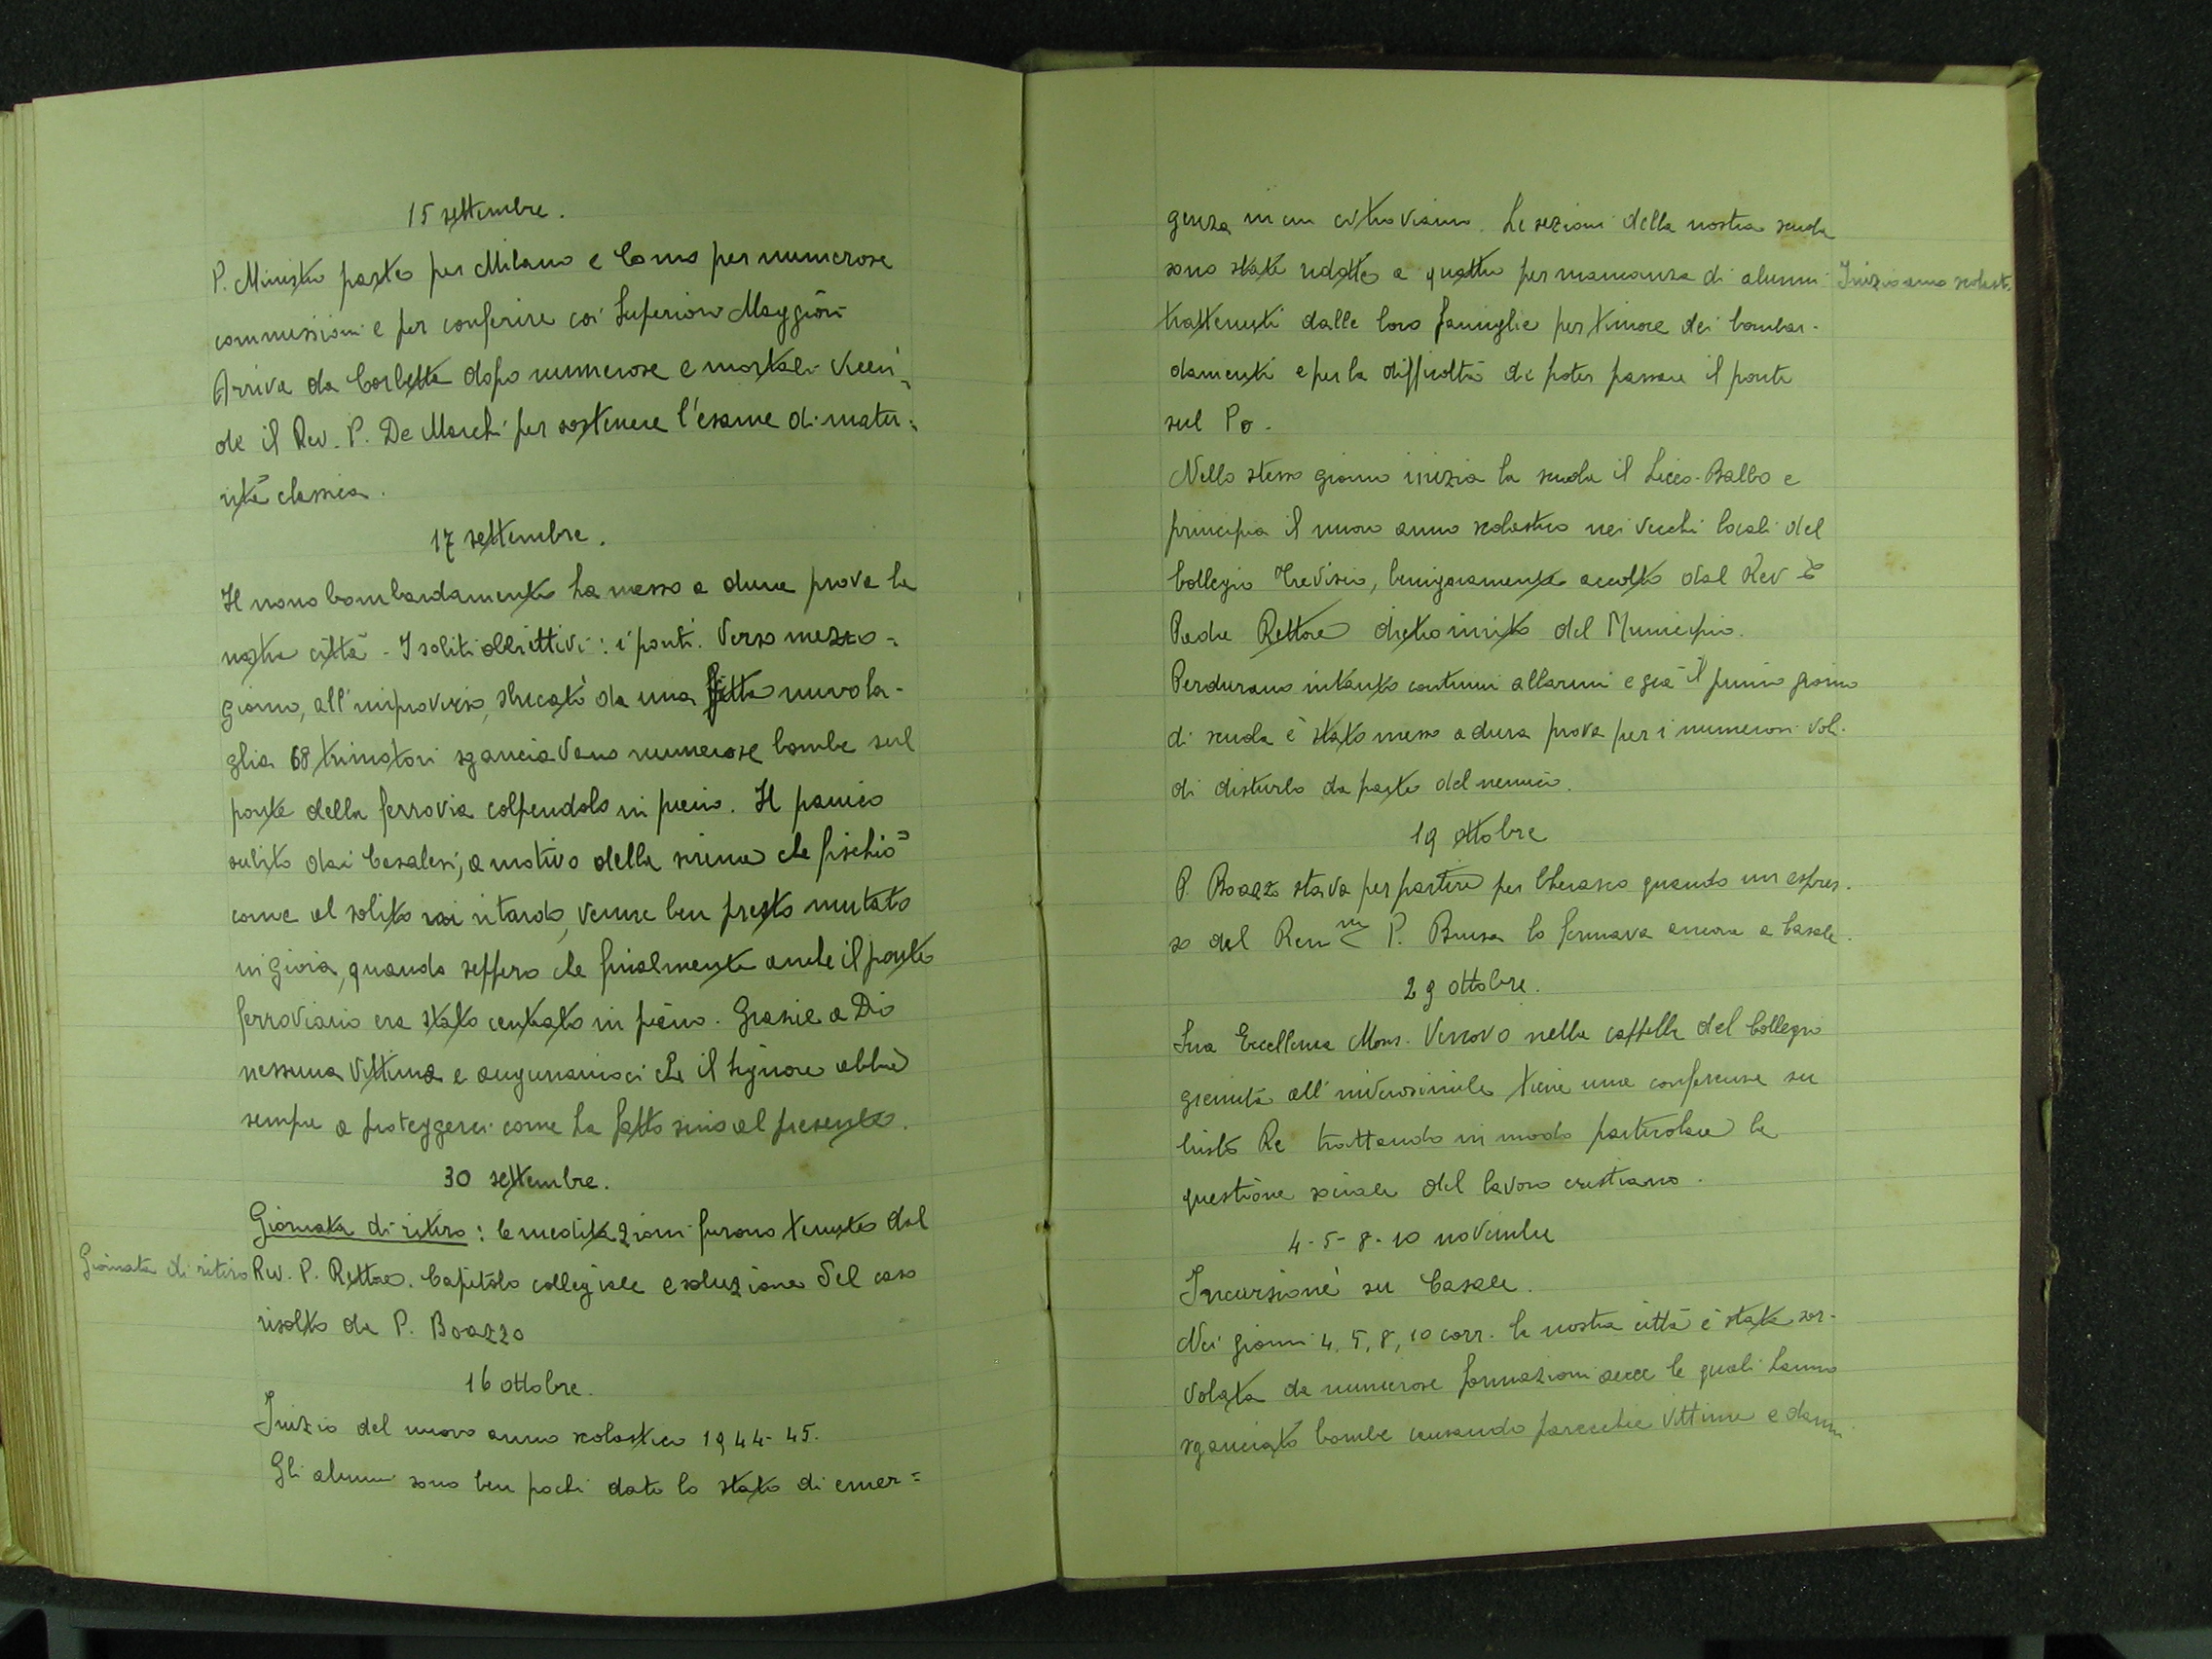 15 settembre.
P. Ministro parte per Milano e Como per numerose
commissioni e per conferire coi Superiori Maggiori
Arriva da Corbetta dopo numerose e mortali vicen-
de il Rev. P. De Marchi per sostenere l'esame di matu-
rità classica.
17 settembre.
Il nono bombardamento ha messo a dura prova la
nostra città - I soliti obbiettivi: i ponti. Verso mezzo=
giorno, all'improvviso, sbucati da una fitta nuvola-
glia 68 trimotori sganciavano numerose bombe sul
ponte della ferrovia colpendolo in pieno. Il panico
subito dai Casalesi, a motivo della sirena che fischiò
come al solito in ritardo, venne ben presto mutato
in gioia, quando seppero che finalmente anche il ponte
ferroviario era stato centrato in pieno. Grazie a Dio
nessuna vittima e auguriamoci che il Signore abbia
sempre a proteggerci come ha fatto sino al presente.
30 settembre.
Giornata di ritiro: le meditazioni furono tenute dal
Giornata di ritiro
Rev. P. Rettore. Capitolo collegiale e soluzione del caso
risolto da P. Boazzo
16 ottobre.
Inizio del nuovo anno scolastico 1944-45.
Gli alunni sono ben pochi dato lo stato di emer=
genza in cui ci troviamo. Le sezioni della nostra scuola
sono state ridotte a quattro per mancanza di alunni
Inizio anno scolast.
trattenuti dalle loro famiglie per timore dei bombar-
damenti e per la difficoltà di poter passare il ponte
sul Po.
Nello stesso giorno inizia la scuola il Liceo-Balbo e
principia il nuovo anno scolastico nei vecchi locali del
Collegio Trevisio, benignamente accolto dal Rev
Padre Rettore dietro invito del Municipio.
Perdurano intanto continui allarmi e già il primo giorno
di scuola è stato messo a dura prova per i numerosi voli
di disturbo da parte del nemico.
19 ottobre
P Boazzo stava per partire per Cherasco quando un espres-
so del Rev m P. Brusa lo fermava ancora a Casale.
29 ottobre.
Sua Eccellenza Mons. Vescovo nella cappella del Collegio
gremita all'inverosimile tiene una conferenza su
Cristo Re trattando in modo particolare la
questione sociale del lavoro cristiano.
4-5-8-10 novembre
Incursione su Casale.
Nei giorni 4, 5, 8, 10 corr. la nostra città è stata sor-
volata da numerose formazioni aeree le quali hanno
sganciato bombe causando parecchie vittime e danni